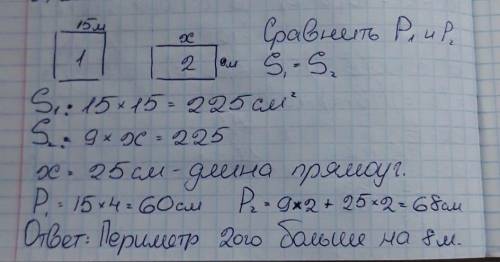 15м
1
x
2
см
Сравнить P₁ и P₂
S₁ = S₂
S₁: 15 × 15 = 225 см²
S₂: 9 × x = 225
x = 25 см - длина прямоуг.
P₁ = 15 × 4 = 60 см P₂ = 9 × 2 + 25 × 2 = 68 см
Ответ: Периметр 2ого больше на 8 м.